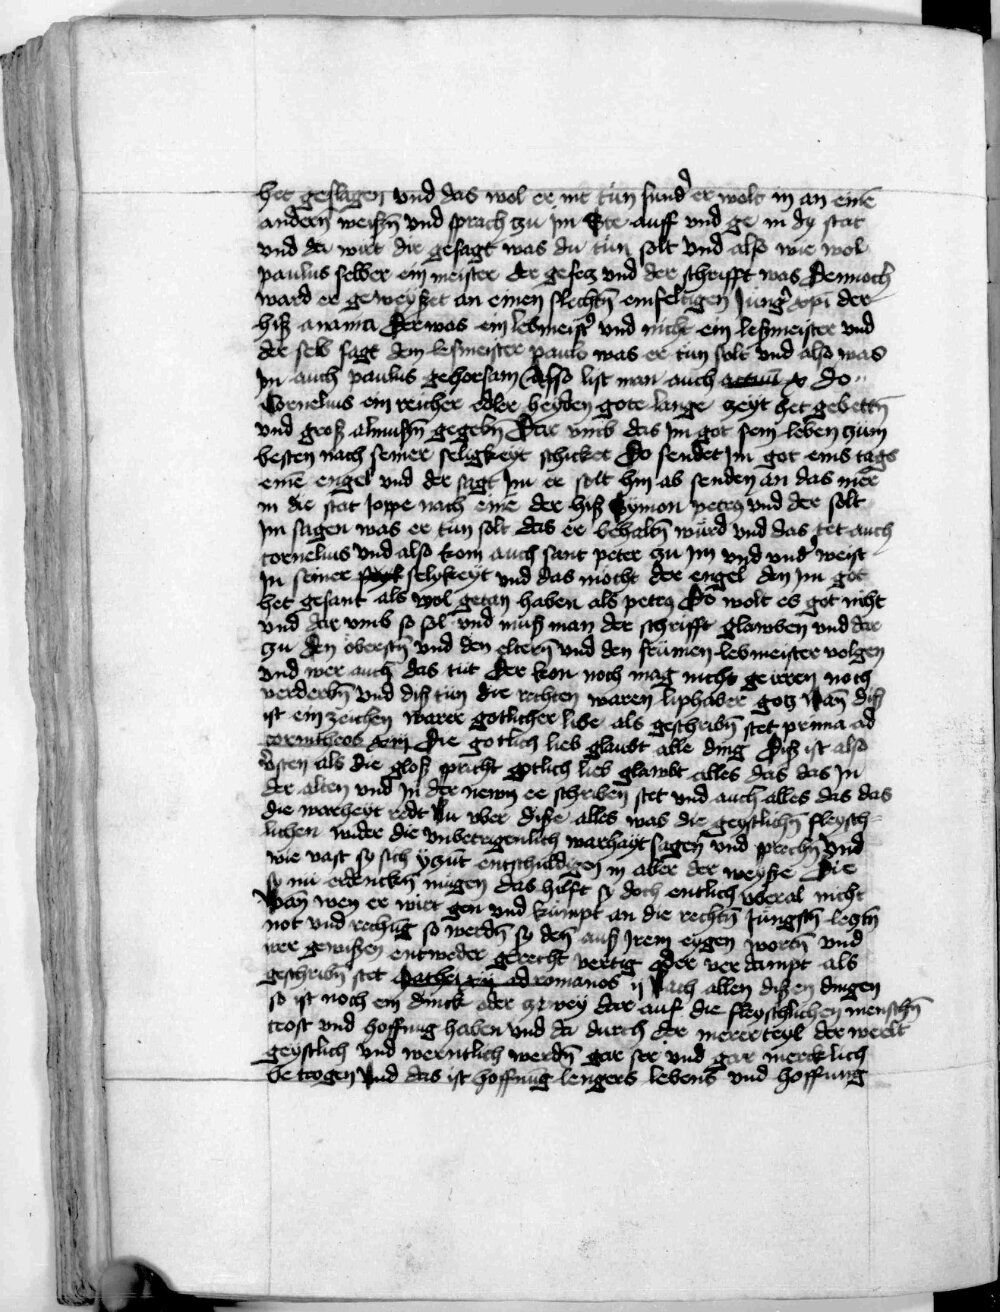 het geslagen und das wol er nit tün sund er wolt in an einē
andern weisen̄ und sprach zu im Ste auff und ge in dy stat
und da wirt dir gesagt was du tün solt und also wie wol
paulus selber ein meister der gesetz und der schrifft was Dennoch
ward er geweyset an einen slechtn̄ einfeltigen Jüngˀ xp̄i der
hiß anania Der was ein lebmeistˀ und nicht ein lesmeister und
der selb sagt dem lesmeister paulo was er tün solt und also was
Im auch paulus gehorsam Also list man auch actuū x Do
Cornelius ein reicher edler heyden gote lange zeyt het gebettn̄
und groß almusn̄ gegebn̄ Dar umb das im got sein leben zum
besten nach seiner seligkeyt schicket Do sendet Im got eins tags
einē engel und der sagt Im er solt hin ab senden an das mēr
in die stat Joppe nach einē der hiß Symon petrꝰ und der solt
Im sagen was er tün solt das er behaltn̄ würd und das tet auch
cornelius und also kom auch sant peter zu im und und weist
In seiner selykeyt und das mocht der engel den im got
het gesant als wol getan haben als petrꝰ Do wolt es got nicht
und dar umb so sol und muß man der schrifft glawben und dar
zu den öberstn̄ und den eltern̄ und den frümen lebmeister volgen
und wer auch das tut Der kon noch mag nicht geirren noch
verderbn̄ und diß tün die rechten waren liphaber gotz Wan̄ diß
ist ein zeichen warer gotlicher libe als geschribn̄ stet prima ad
corintheos xiij Die gotlich lieb glaubt alle ding Diß ist also
v̄sten als die gloß spricht gotlich lieb glawbt alles das das In
der alten und in der newn̄ ee schriben stet und auch alles das das
die warheyt redt Nu uber dise alles was die geystlichn̄ fleysch
lichen wider die unbetrigenlich warhayt sagen und sprechn̄ und
wie vast sy sich yzūt entschuldigen in aller der weyse Die
sy nu erdenckn̄ mügen das hilft sy doch entlich uberal nicht
Wan̄ wen er wirt gen und kümpt an die rechtn̄ Jüngstn̄ letztn̄
not und rechūg so werdn̄ sy den̄ auß Irem eygen wortn̄ und
irer gewissen entweder gerecht vertig oder verdampt als
geschribn̄ stet Mathei xij ad romanos ij Nach allen disen dingen
so ist noch ein dinck oder zwey dar auf die fleyschlichen menschn̄
trost und hoffnūg haben und da durch der merer teyl der werlt
geystlich und werntlich werdn̄ gar ser und gar mercklich
betrogen Und das ist hoffnūg lengers lebens und hoffnung